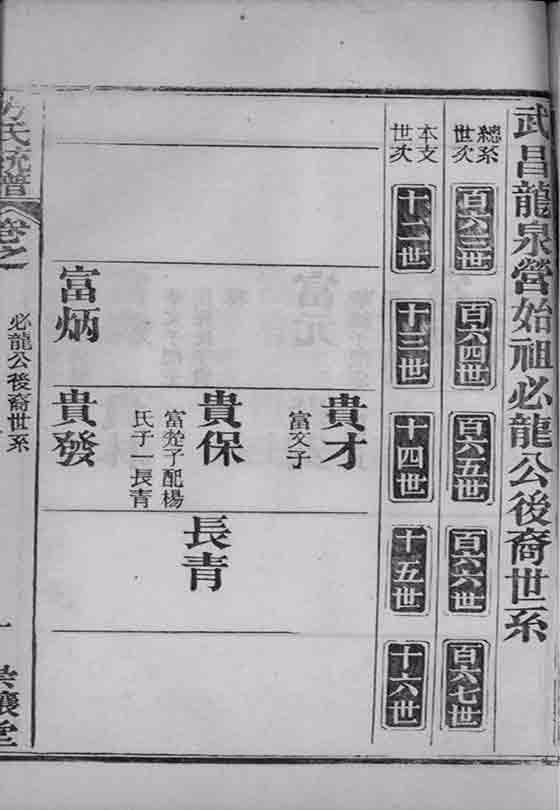 武昌龍泉營始祖必龍公後裔世系
總系世次
百六三世
百六四世
百六五世
百六六世
百六七世
本支世次
十二世
十三世
十四世
十五世
十六世
貴才
富文子
貴保
富瑩子配楊
氏子一長青
長青
富炳
貴發
氏統譜
卷之
必龍公後裔世系